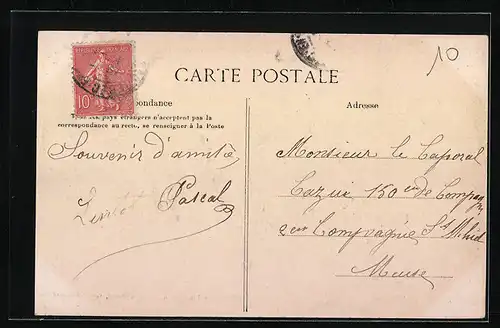 10
REPUBLIQUE FRANÇAISE
10
CARTE POSTALE
pondance
pays étrangers n'acceptent pas la
correspondance au recto, se renseigner à la Poste
Adresse
Souvenir d'amitié
Pascal
Monsieur le Caporal
Cazui 150 de Compagn
2em Compagnie St Mihiel
Meuse